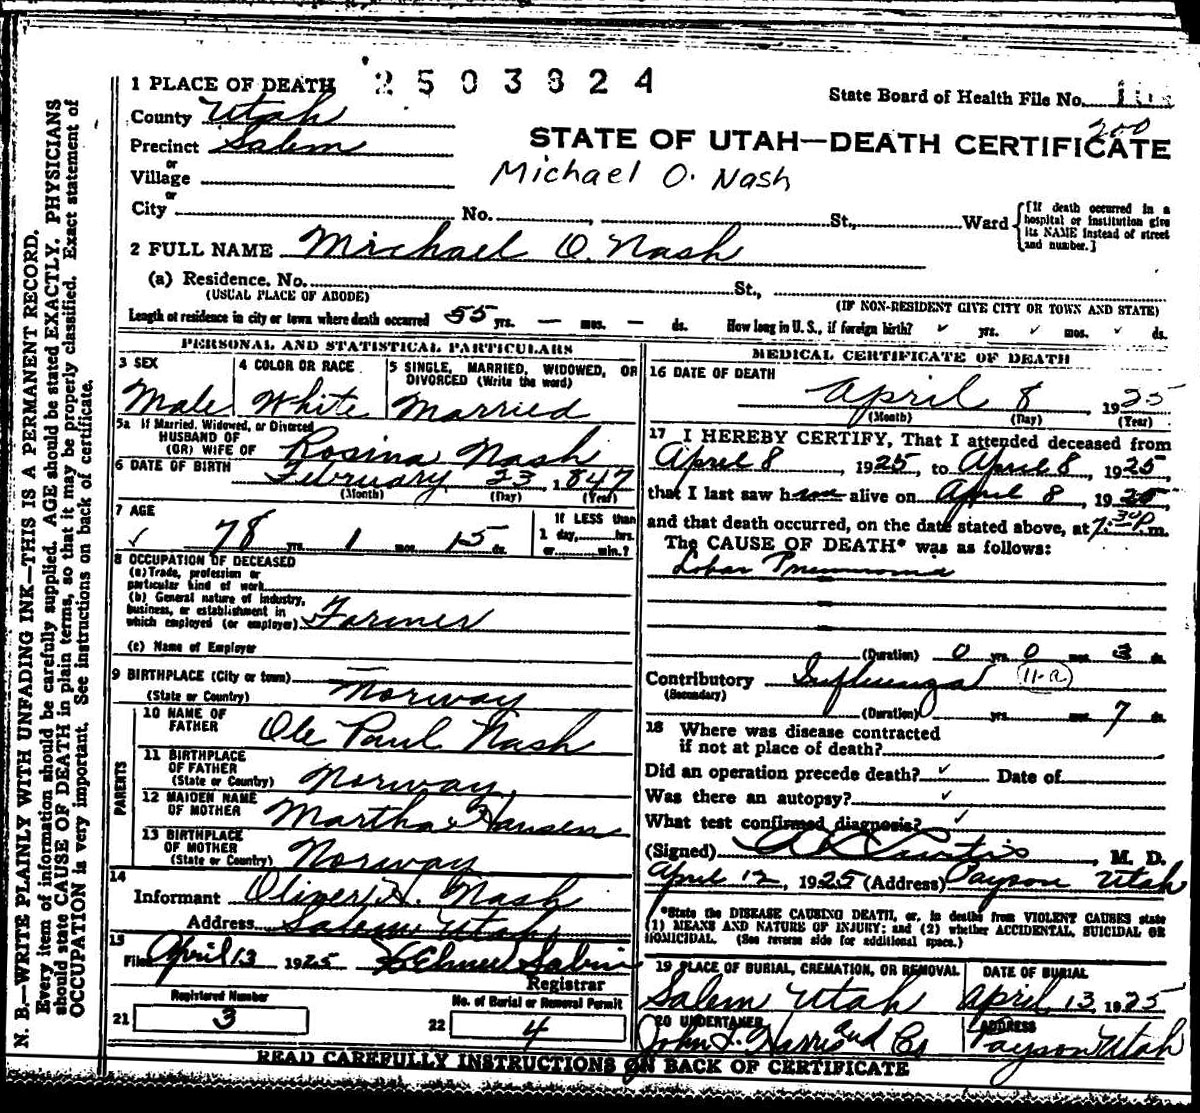 1 PLACE OF DEATH 2503824
State Board of Health File No.
County Utah
200
Precinct Salem
STATE OF UTAH—DEATH CERTIFICATE
or
Village
Michael O. Nash
or
City No. , St., Ward
[If death occurred in a hospital or institution give its NAME instead of street and number.]
2 FULL NAME Michael O. Nash
(a) Residence. No. St.,
(USUAL PLACE OF ABODE) (IF NON-RESIDENT GIVE CITY OR TOWN AND STATE)
Length of residence in city or town where death occurred 55 yrs. — mos. — ds. How long in U. S., if foreign birth? ✓ yrs. ✓ mos. ✓ ds.
PERSONAL AND STATISTICAL PARTICULARS
3 SEX
Male
4 COLOR OR RACE
White
5 SINGLE, MARRIED, WIDOWED, OR
DIVORCED (Write the word)
Married
5a If Married, Widowed, or Divorced
HUSBAND OF
(OR) WIFE OF Rosina Nash
6 DATE OF BIRTH February 23, 1847
(Month) (Day) (Year)
7 AGE
✓ 78 yrs. 1 mos. 15 ds.
If LESS than
1 day, hrs.
or min.?
8 OCCUPATION OF DECEASED
(a) Trade, profession or
particular kind of work
(b) General nature of industry,
business, or establishment in
which employed (or employer) Farmer
(c) Name of Employer
9 BIRTHPLACE (City or town) —
(State or Country) Norway
PARENTS
10 NAME OF
FATHER Ole Paul Nash
11 BIRTHPLACE
OF FATHER
(State or Country) Norway
12 MAIDEN NAME
OF MOTHER Martha Hansen
13 BIRTHPLACE
OF MOTHER
(State or Country) Norway
14
Informant Oliver H. Nash
Address Salem Utah
15
Filed April 13 1925
Registrar
Registered Number
21 3
No. of Burial or Removal Permit
22 4
MEDICAL CERTIFICATE OF DEATH
16 DATE OF DEATH
April 8, 1925
(Month) (Day) (Year)
17 I HEREBY CERTIFY, That I attended deceased from
April 8, 1925, to April 8, 1925,
that I last saw h alive on April 8, 1925
and that death occurred, on the date stated above, at 7:30 P. m.
The CAUSE OF DEATH* was as follows:
Lobar Pneumonia
(Duration) 0 yrs. 0 mos. 3 ds.
Contributory Influenza 11-a
(Secondary)
(Duration) yrs. mos. 7 ds.
18 Where was disease contracted
if not at place of death?
Did an operation precede death? ✓ Date of
Was there an autopsy? ✓
What test confirmed diagnosis? ✓
(Signed) Curtis, M. D.
April 12, 1925 (Address) Payson Utah
*State the DISEASE CAUSING DEATH, or, in deaths from VIOLENT CAUSES state
(1) MEANS AND NATURE OF INJURY; and (2) whether ACCIDENTAL, SUICIDAL OR
HOMICIDAL. (See reverse side for additional space.)
19 PLACE OF BURIAL, CREMATION, OR REMOVAL
Salem Utah
DATE OF BURIAL
April 13, 1925
20 UNDERTAKER
Co
ADDRESS
Payson Utah
READ CAREFULLY INSTRUCTIONS ON BACK OF CERTIFICATE
N. B.—WRITE PLAINLY WITH UNFADING INK—THIS IS A PERMANENT RECORD.
Every item of information should be carefully supplied. AGE should be stated EXACTLY. PHYSICIANS
should state CAUSE OF DEATH in plain terms, so that it may be properly classified. Exact statement of
OCCUPATION is very important. See instructions on back of certificate.